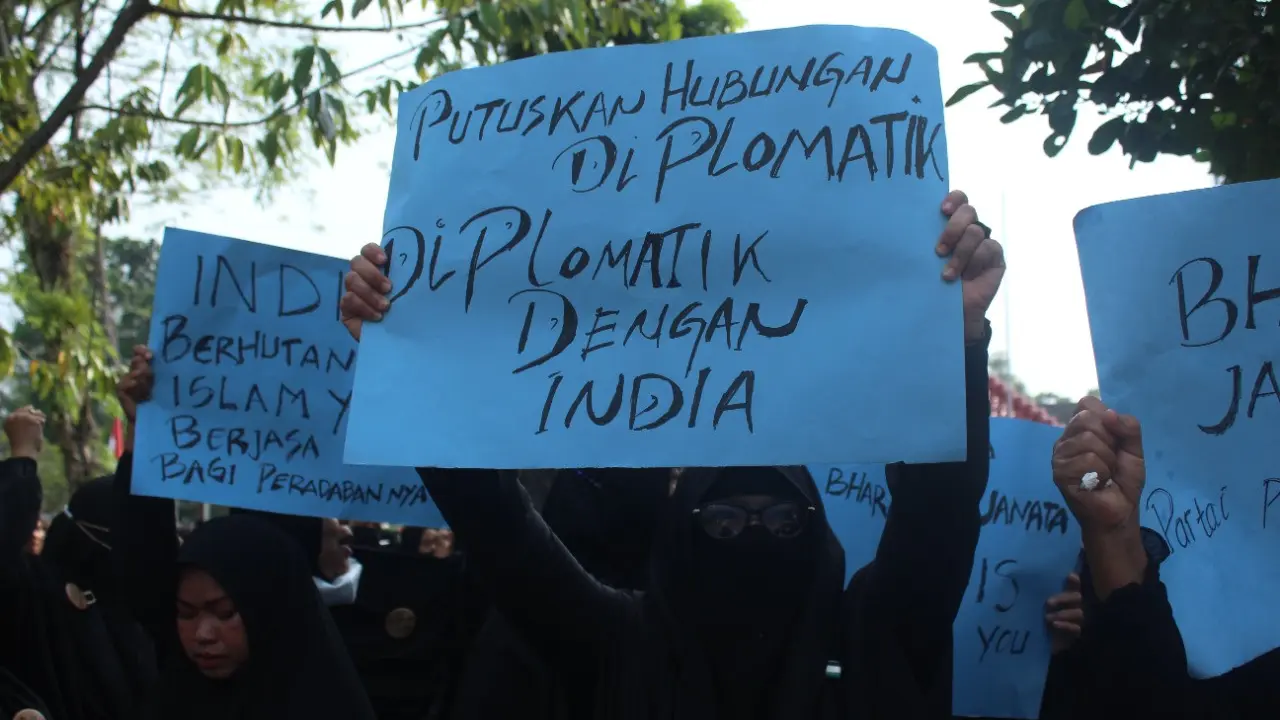 PUTUSKAN HUBUNGAN
DiPLOMATIK
DiPlOMATIK
DENGAN
INDIA
INDI
BERHUTAN
ISLAM Y
BERJASA
BAGI PERADABANNYA
BHAR
JANATA
IS
YOU
BH
JA
Partai P